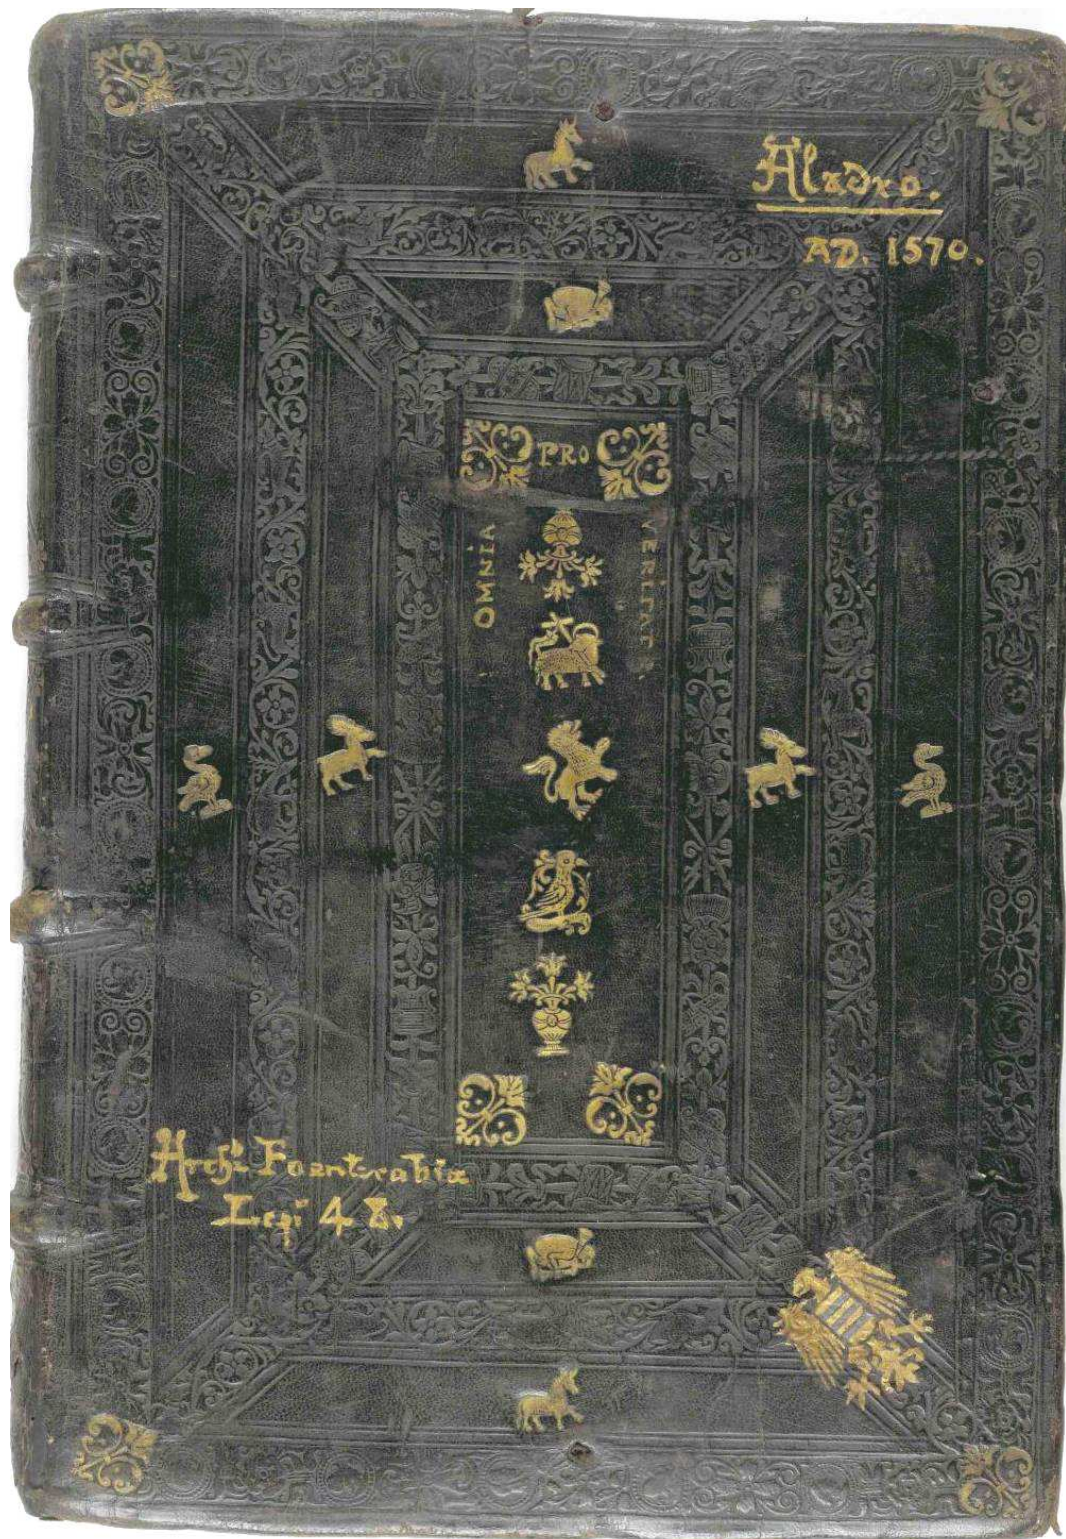 Aladro.
AD. 1570.
PRO
OMNIA
VERITATE
Archi. Foenterabia
Legi 48.